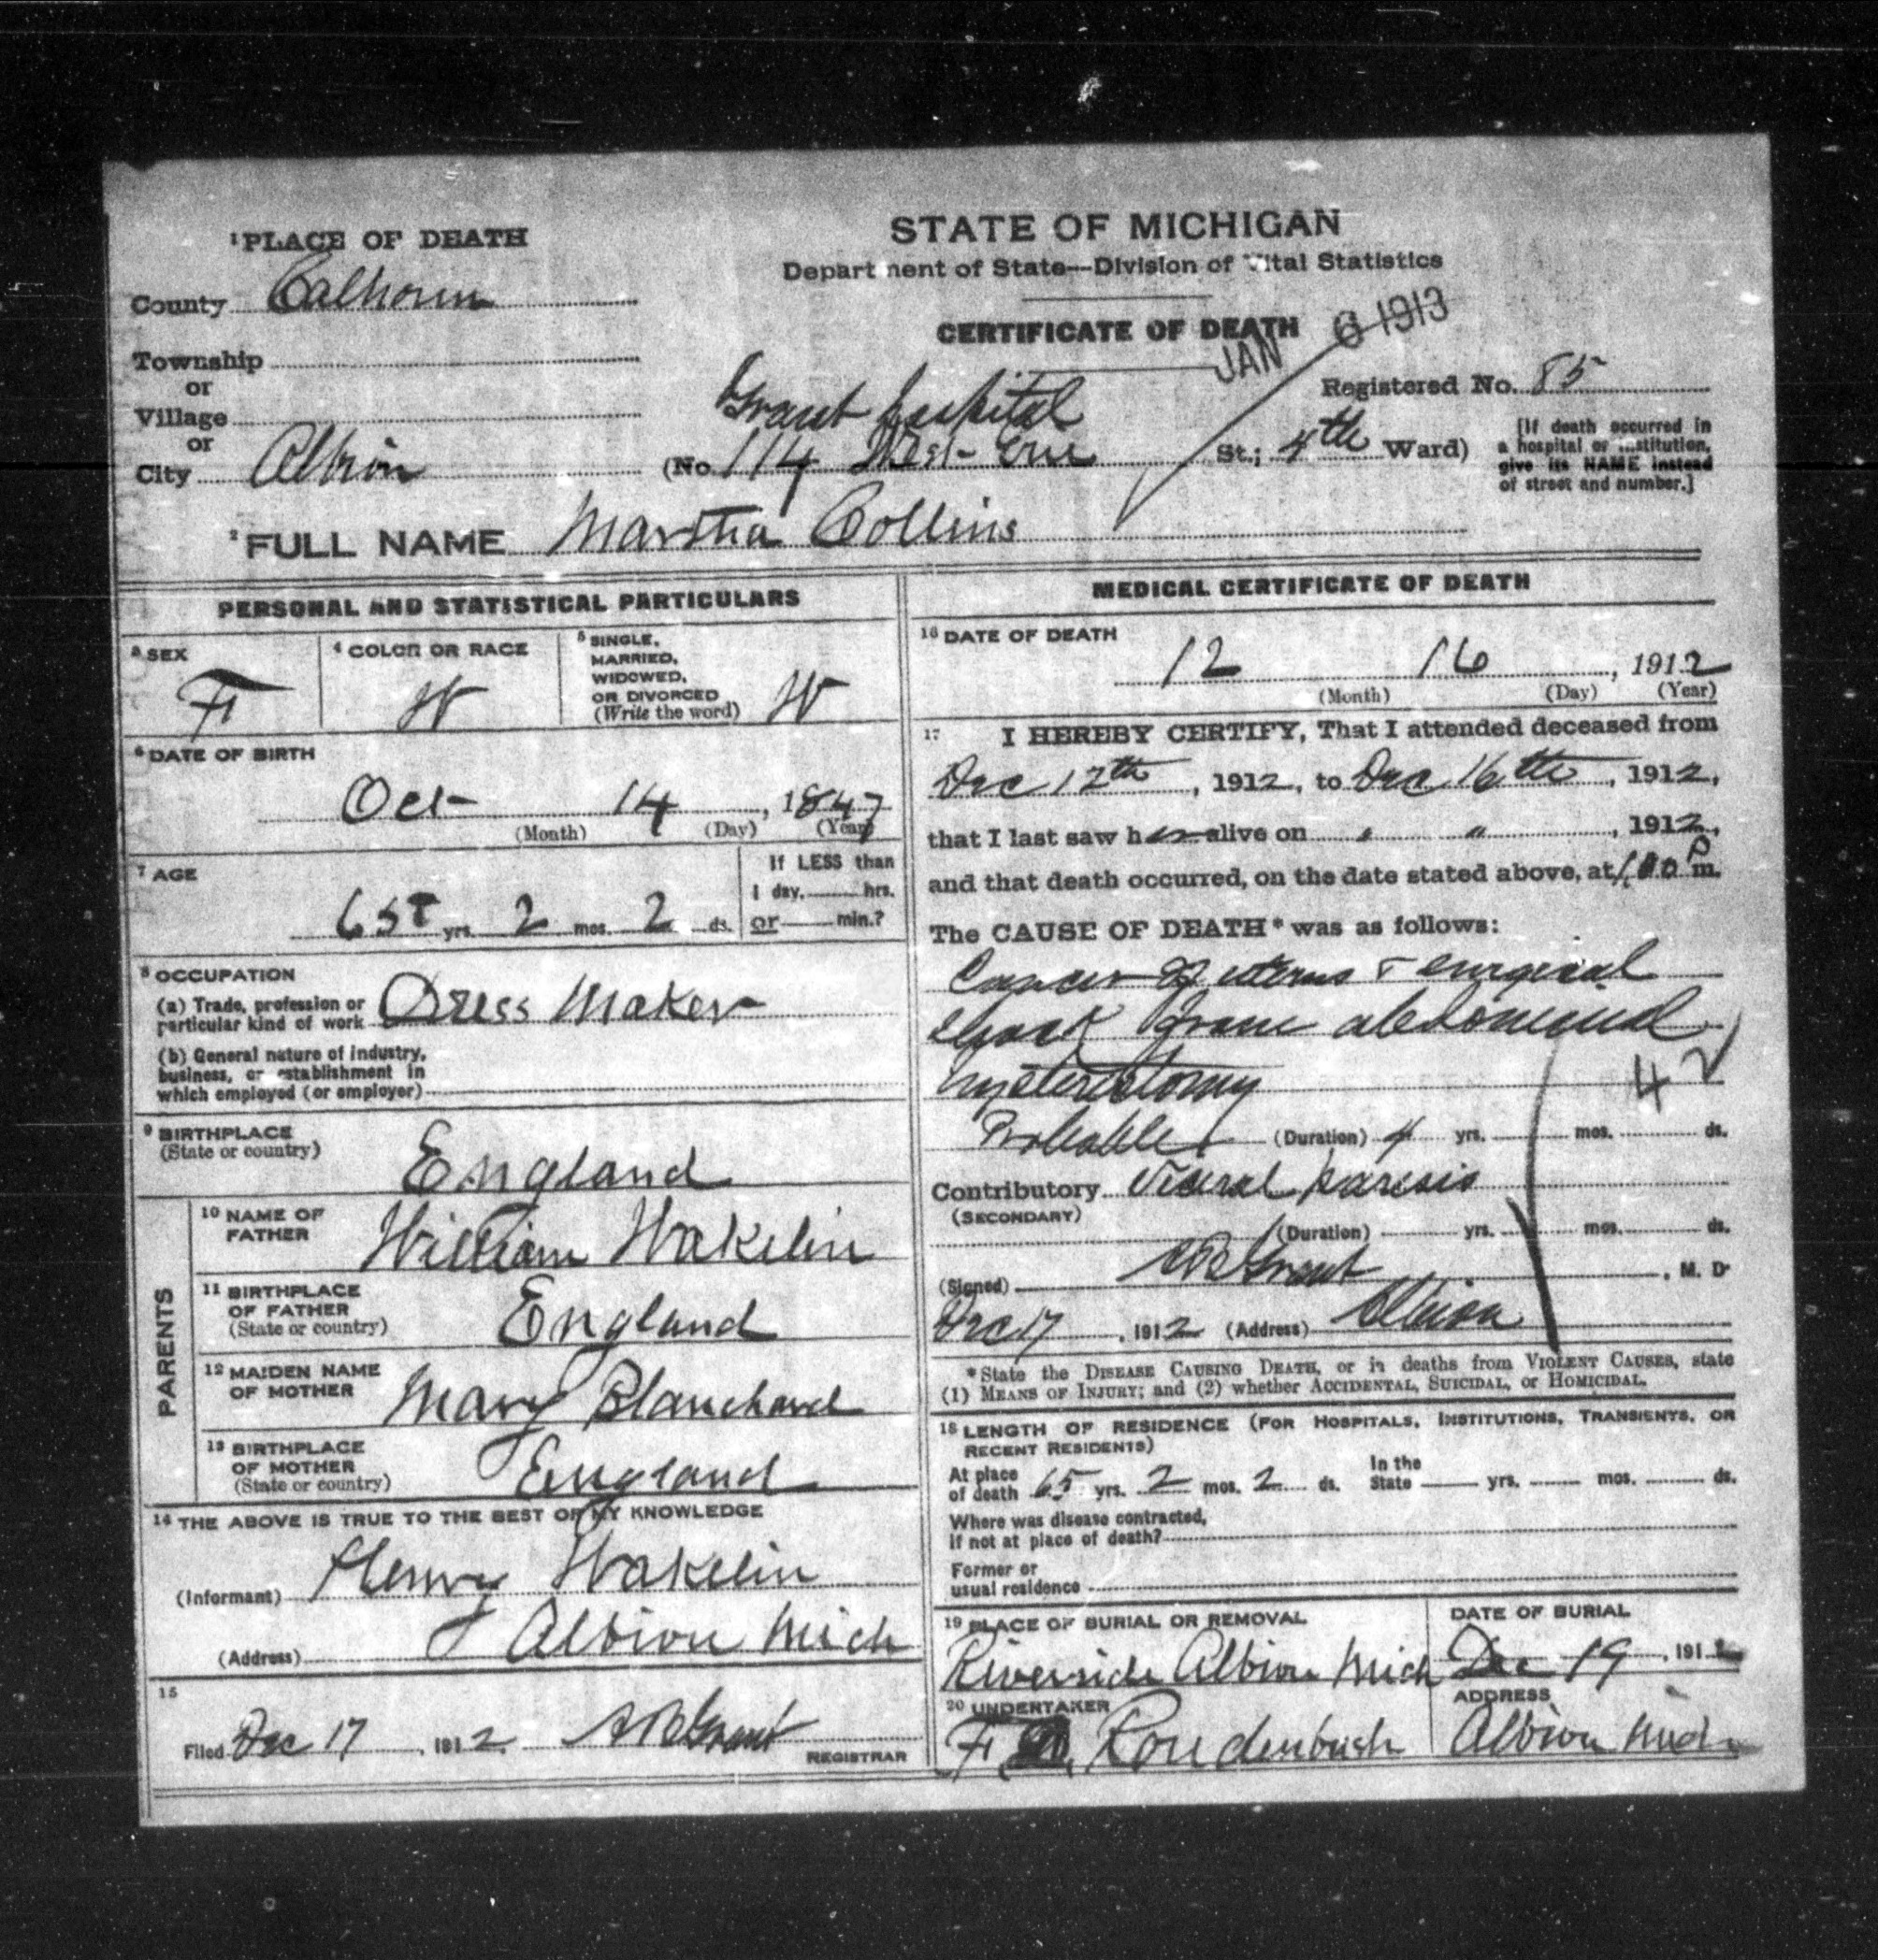 STATE OF MICHIGAN
Department of State—Division of Vital Statistics
CERTIFICATE OF DEATH
JAN 6 1913
1 PLACE OF DEATH
County Calhoun
Township
or
Village
or
City Albion
Grant hospital
(No. 114 West Erie St.; 4th Ward)
Registered No. 85
[If death occurred in
a hospital or institution,
give its NAME instead
of street and number.]
2 FULL NAME Martha Collins
PERSONAL AND STATISTICAL PARTICULARS
3 SEX
F
4 COLOR OR RACE
W
5 SINGLE,
MARRIED,
WIDOWED,
OR DIVORCED
(Write the word) W
6 DATE OF BIRTH
Oct 14, 1847
(Month) (Day) (Year)
7 AGE
65 yrs. 2 mos. 2 ds.
If LESS than
1 day, hrs.
or min.?
8 OCCUPATION
(a) Trade, profession or
particular kind of work Dress Maker
(b) General nature of industry,
business, or establishment in
which employed (or employer)
9 BIRTHPLACE
(State or country)
England
PARENTS
10 NAME OF
FATHER
William Wakelin
11 BIRTHPLACE
OF FATHER
(State or country)
England
12 MAIDEN NAME
OF MOTHER
Mary Blanchard
13 BIRTHPLACE
OF MOTHER
(State or country)
England
14 THE ABOVE IS TRUE TO THE BEST OF MY KNOWLEDGE
(Informant) Henry Wakelin
(Address) Albion Mich
15
Filed Dec 17, 1912
Grant
REGISTRAR
MEDICAL CERTIFICATE OF DEATH
16 DATE OF DEATH
12 16, 1912
(Month) (Day) (Year)
17 I HEREBY CERTIFY, That I attended deceased from
Dec 12th, 1912, to Dec 16th, 1912,
that I last saw her alive on " ", 1912,
and that death occurred, on the date stated above, at 1.00 P m.
The CAUSE OF DEATH* was as follows:
Cancer of uterus & surgical
shock from abdominal
hysterectomy
42
Probable (Duration) 4 yrs. mos. ds.
Contributory Viseral paresis
(SECONDARY)
(Duration) yrs. mos. ds.
(Signed) Grant, M. D.
Dec 17, 1912 (Address) Albion
*State the DISEASE CAUSING DEATH, or in deaths from VIOLENT CAUSES, state
(1) MEANS OF INJURY; and (2) whether ACCIDENTAL, SUICIDAL, or HOMICIDAL.
18 LENGTH OF RESIDENCE (FOR HOSPITALS, INSTITUTIONS, TRANSIENTS, OR
RECENT RESIDENTS)
At place
of death 65 yrs. 2 mos. 2 ds.
In the
State yrs. mos. ds.
Where was disease contracted,
If not at place of death?
Former or
usual residence
19 PLACE OF BURIAL OR REMOVAL
Riverside Albion Mich
DATE OF BURIAL
Dec 19, 1912
20 UNDERTAKER
F Roudenbush
ADDRESS
Albion Mich